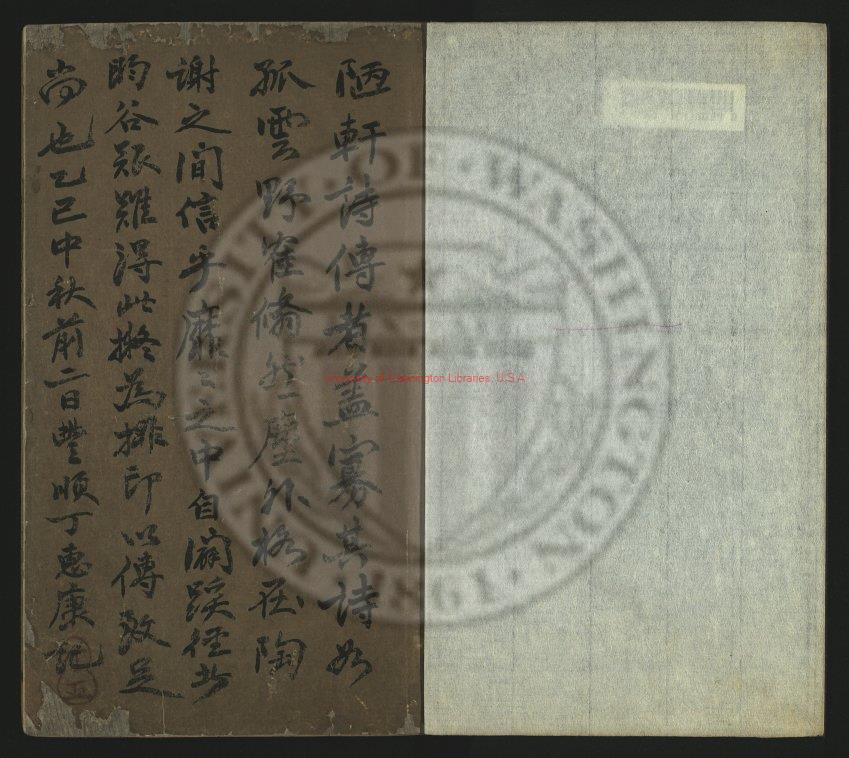 陋軒詩傳者盖寡其詩如
孤雲野寉翛然塵外格在陶
謝之間信乎靡之中自闢蹊徑者
昀谷跟難得此擬為排印以傳致足
尚也乙巳中秋前二日豐順丁惠康記
UNIVERSITY OF WASHINGTON
1861
University of Washington Libraries, U.S.A